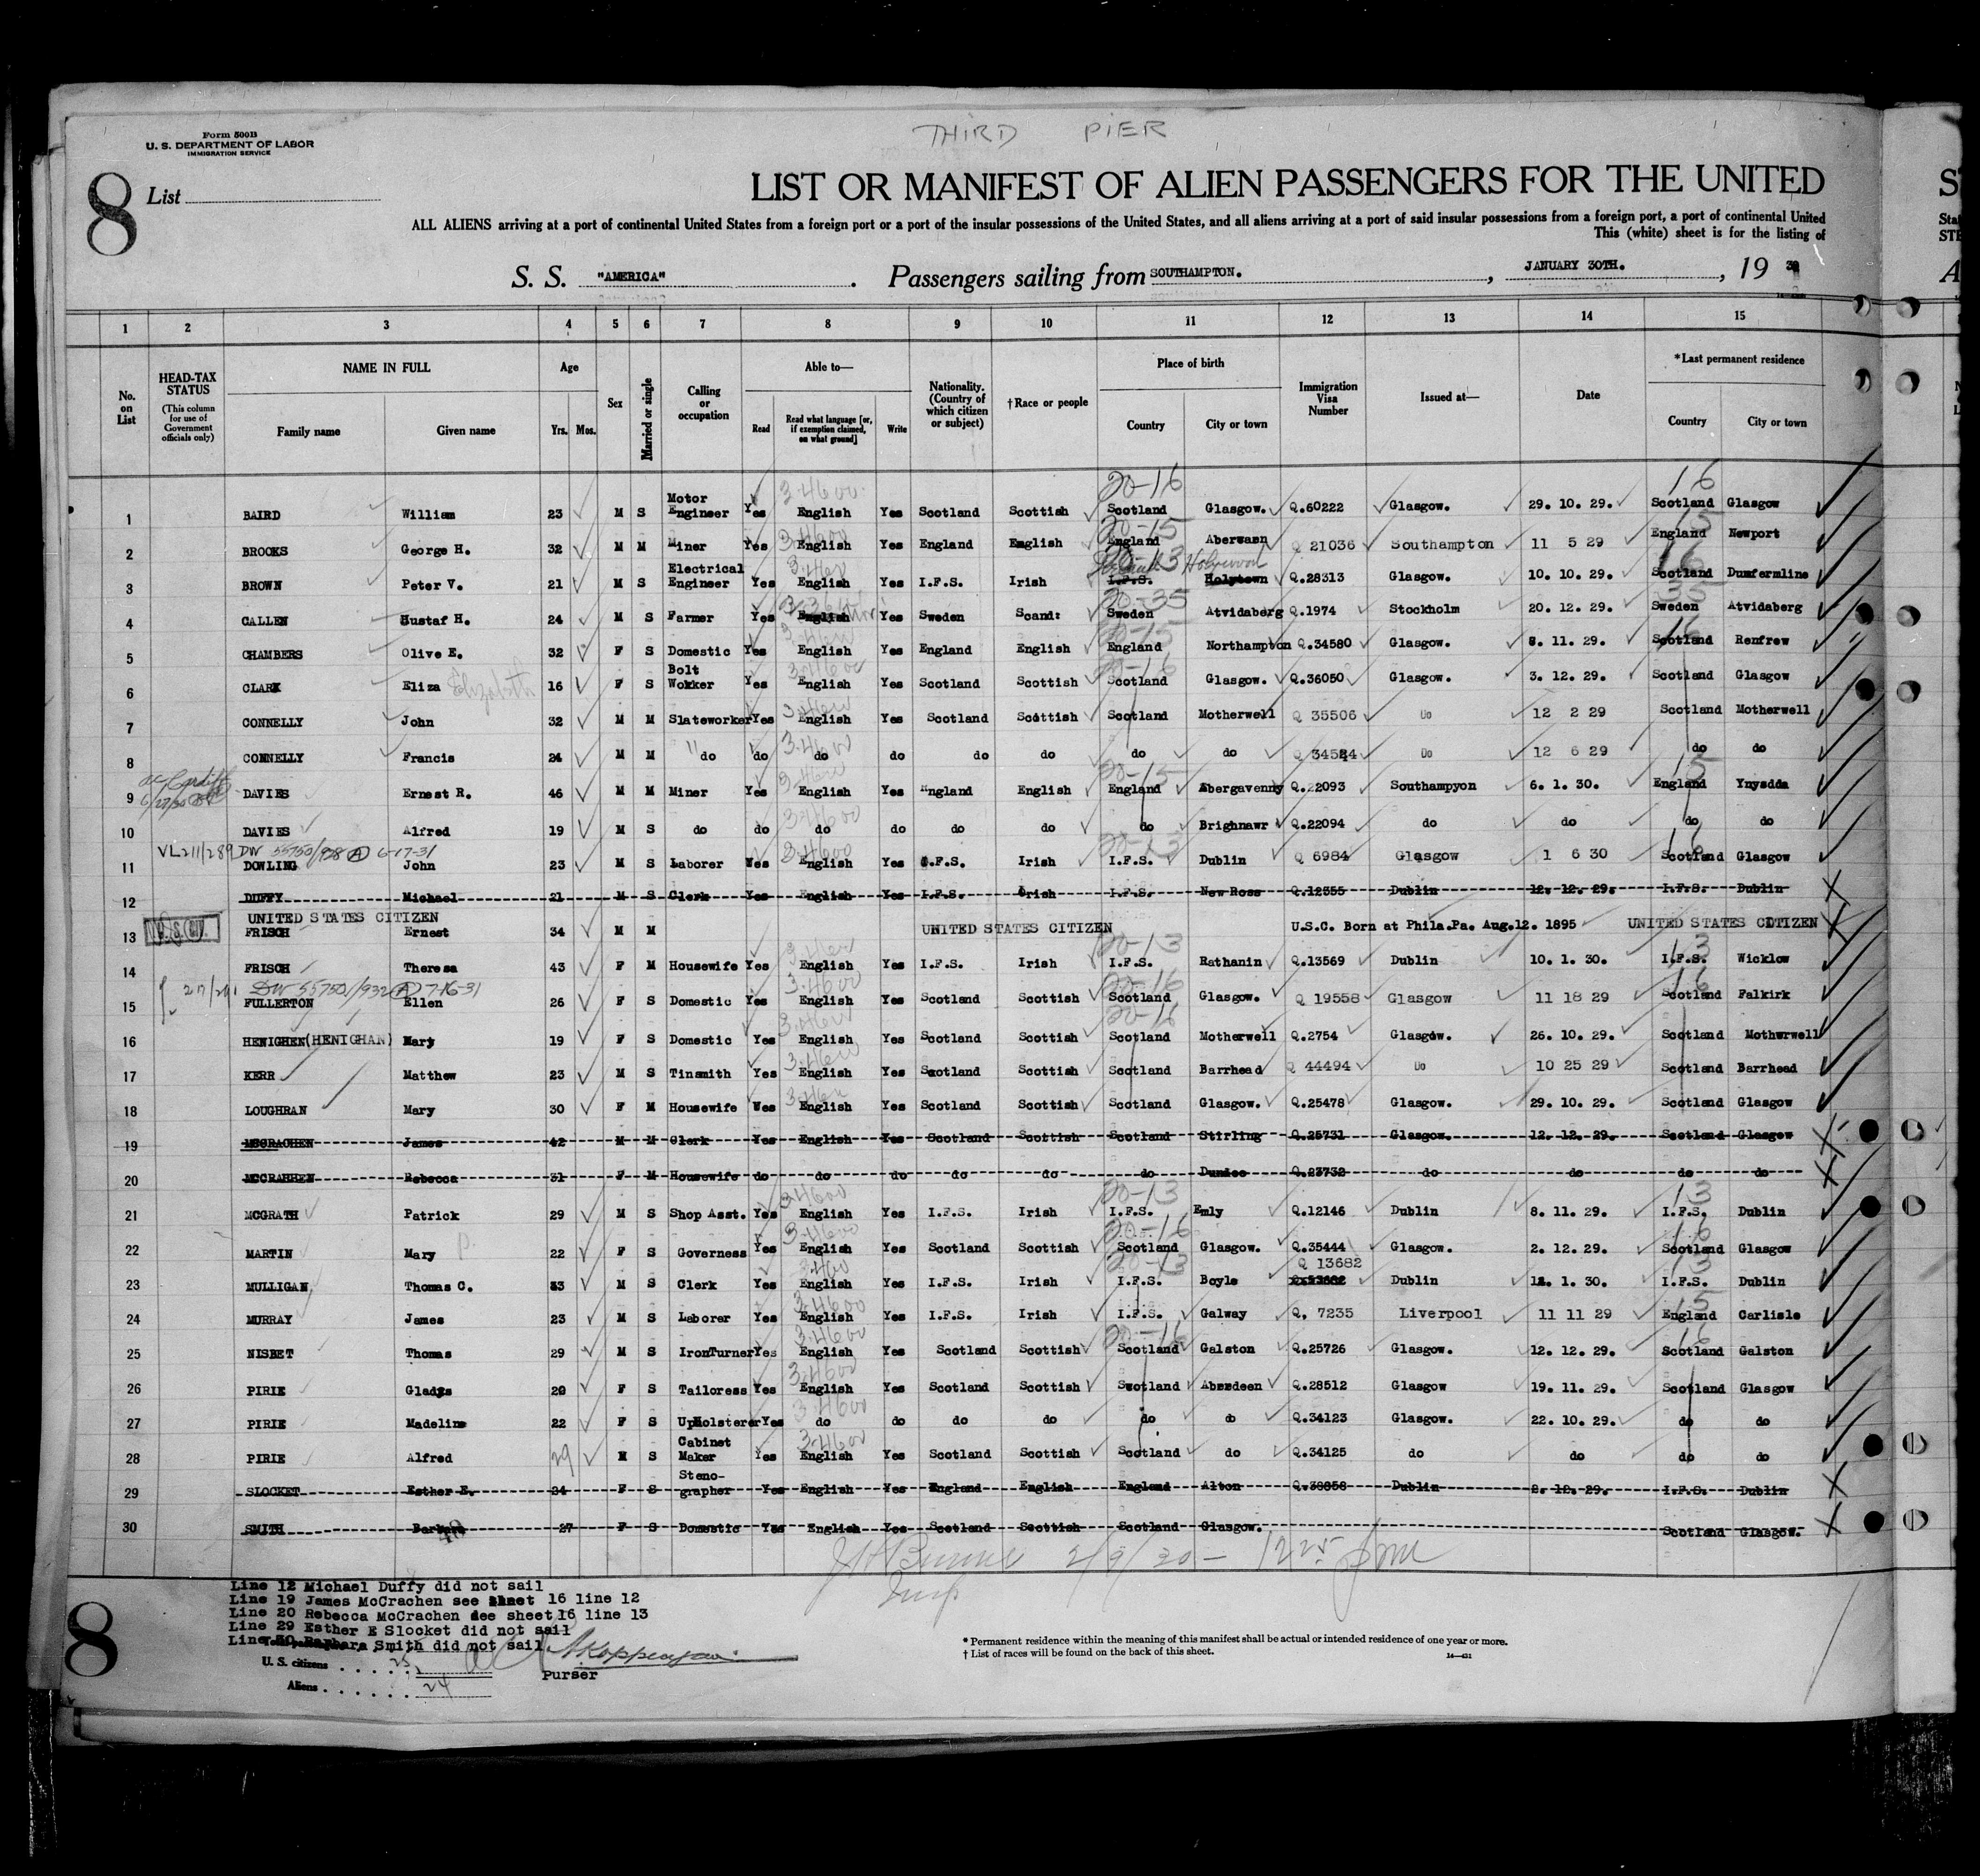 THIRD PIER
Form 500B
U. S. DEPARTMENT OF LABOR
IMMIGRATION SERVICE
8 List
LIST OR MANIFEST OF ALIEN PASSENGERS FOR THE UNITED
ALL ALIENS arriving at a port of continental United States from a foreign port or a port of the insular possessions of the United States, and all aliens arriving at a port of said insular possessions from a foreign port, a port of continental United
This (white) sheet is for the listing of
S. S. "AMERICA" . Passengers sailing from SOUTHAMPTON. , JANUARY 30TH. , 19 30
1 2 3 4 5 6 7 8 9 10 11 12 13 14 15
No. on List
HEAD-TAX STATUS (This column for use of Government officials only)
NAME IN FULL Family name Given name
Age Yrs. Mos.
Sex
Married or single
Calling or occupation
Able to— Read Read what language [or, if exemption claimed, on what ground] Write
Nationality. (Country of which citizen or subject)
† Race or people
Place of birth Country City or town
Immigration Visa Number
Issued at—
Date
*Last permanent residence Country City or town
1 BAIRD William 23 M S Motor Engineer Yes 3-4600 English Yes Scotland Scottish 20-16 Scotland Glasgow. Q.60222 Glasgow. 29. 10. 29. 16 Scotland Glasgow
2 BROOKS George H. 32 M M Miner Yes 3-4600 English Yes England English 20-15 England Aberwann Q 21036 Southampton 11 5 29 England Newport
3 BROWN Peter V. 21 M S Electrical Engineer Yes English Yes I.F.S. Irish I.F.S. Holytown Holywood Q.28313 Glasgow. 10. 10. 29. 16 Scotland Dumfermline
4 CALLEN Gustaf H. 24 M S Farmer Yes English Yes Sweden Scand: 20-35 Sweden Atvidaberg Q.1974 Stockholm 20. 12. 29. 35 Sweden Atvidaberg
5 CHAMBERS Olive E. 32 F S Domestic Yes English Yes England English 20-15 England Northampton Q.34580 Glasgow. 8. 11. 29. 16 Scotland Renfrew
6 CLARK Eliza Elizabeth 16 F S Bolt Wokker Yes 3-4600 English Yes Scotland Scottish 20-16 Scotland Glasgow. Q.36050 Glasgow. 3. 12. 29. Scotland Glasgow
7 CONNELLY John 32 M M Slateworker Yes English Yes Scotland Scottish Scotland Motherwell Q 35506 Do 12 2 29 Scotland Motherwell
8 CONNELLY Francis 24 M M do do 3-4600 do do do do do do Q 34524 Do 12 6 29 do do
9 DAVIES Ernest R. 46 M M Miner Yes English Yes England English 20-15 England Abergavenny Q.22093 Southampyon 6. 1. 30. 15 England Ynysdda
10 DAVIES Alfred 19 M S do do 3-4600 do do do do do Brighnawr Q.22094 do do do do
VL211/289 DW 55750/928 A 6-17-31
11 DOWLING John 23 M S Laborer Yes 3-4600 English Yes I.F.S. Irish 20-13 I.F.S. Dublin Q 6984 Glasgow 1 6 30 16 Scotland Glasgow
12 DUFFY Michael 21 M S Clerk Yes English Yes I.F.S. Irish I.F.S. New Ross Q.12355 Dublin 12. 12. 29. I.F.S. Dublin
UNITED STATES CITIZEN
13 FRISCH Ernest 34 M M UNITED STATES CITIZEN U.S.C. Born at Phila.Pa. Aug.12. 1895 UNITED STATES CITIZEN
14 FRISCH Theresa 43 F M Housewife Yes English Yes I.F.S. Irish 20-13 I.F.S. Rathanin Q.13569 Dublin 10. 1. 30. 13 I.F.S. Wicklow
DW 55750/932 A 7-16-31
15 FULLERTON Ellen 26 F S Domestic Yes 3-4600 English Yes Scotland Scottish 20-16 Scotland Glasgow. Q 19558 Glasgow 11 18 29 16 Scotland Falkirk
16 HENIGHEN (HENIGHAN) Mary 19 F S Domestic Yes English Yes Scotland Scottish 20-16 Scotland Motherwell Q.2754 Glasgow. 26. 10. 29. Scotland Motherwell
17 KERR Matthew 23 M S Tinsmith Yes English Yes Scotland Scottish Scotland Barrhead Q 44494 Do 10 25 29 Scotland Barrhead
18 LOUGHRAN Mary 30 F M Housewife Yes English Yes Scotland Scottish Scotland Glasgow. Q.25478 Glasgow. 29. 10. 29. Scotland Glasgow
19 MCCRACHEN James 42 M M Clerk Yes English Yes Scotland Scottish Scotland Stirling Q.25731 Glasgow. 12. 12. 29. Scotland Glasgow
20 MCCRAHHEN Rebecca 31 F M Housewife do do do do do do Dundee Q.23732 do do do do
21 MCGRATH Patrick 29 M S Shop Asst. Yes 3-4600 English Yes I.F.S. Irish 20-13 I.F.S. Emly Q.12146 Dublin 8. 11. 29. 13 I.F.S. Dublin
22 MARTIN Mary P. 22 F S Governess Yes 3-4600 English Yes Scotland Scottish 20-16 Scotland Glasgow. Q.35444 Glasgow. 2. 12. 29. 16 Scotland Glasgow
23 MULLIGAN Thomas C. 33 M S Clerk Yes English Yes I.F.S. Irish 20-13 I.F.S. Boyle Q 13682 Dublin 11. 1. 30. 13 I.F.S. Dublin
24 MURRAY James 23 M S Laborer Yes 3-4600 English Yes I.F.S. Irish I.F.S. Galway Q, 7235 Liverpool 11 11 29 15 England Carlisle
25 NISBET Thomas 29 M S IronTurner Yes 3-4600 English Yes Scotland Scottish 20-16 Scotland Galston Q.25726 Glasgow. 12. 12. 29. 16 Scotland Galston
26 PIRIE Gladys 20 F S Tailoress Yes 3-4600 English Yes Scotland Scottish Scotland Aberdeen Q.28512 Glasgow 19. 11. 29. Scotland Glasgow
27 PIRIE Madeline 22 F S Upholsterer Yes 3-4600 do do do do do do Q.34123 Glasgow. 22. 10. 29. do do
28 PIRIE Alfred 29 M S Cabinet Maker Yes 3-4600 English Yes Scotland Scottish Scotland do Q.34125 do do do do
29 SLOCKET Esther E. 24 F S Steno- grapher Yes English Yes England English England Alton Q.38858 Dublin 2. 12. 29. I.F.S. Dublin
30 SMITH Barbara 27 F S Domestic Yes English Yes Scotland Scottish Scotland Glasgow. Scotland Glasgow.
2/9/30 — 1225 pm
8
Line 12 Michael Duffy did not sail
Line 19 James McCrachen see sheet 16 line 12
Line 20 Rebecca McCrachen dee sheet 16 line 13
Line 29 Esther E Slocket did not sail
Line 30 Barbara Smith did not sail
U. S. citizens
Aliens 24
Purser
* Permanent residence within the meaning of this manifest shall be actual or intended residence of one year or more.
† List of races will be found on the back of this sheet.
14—431